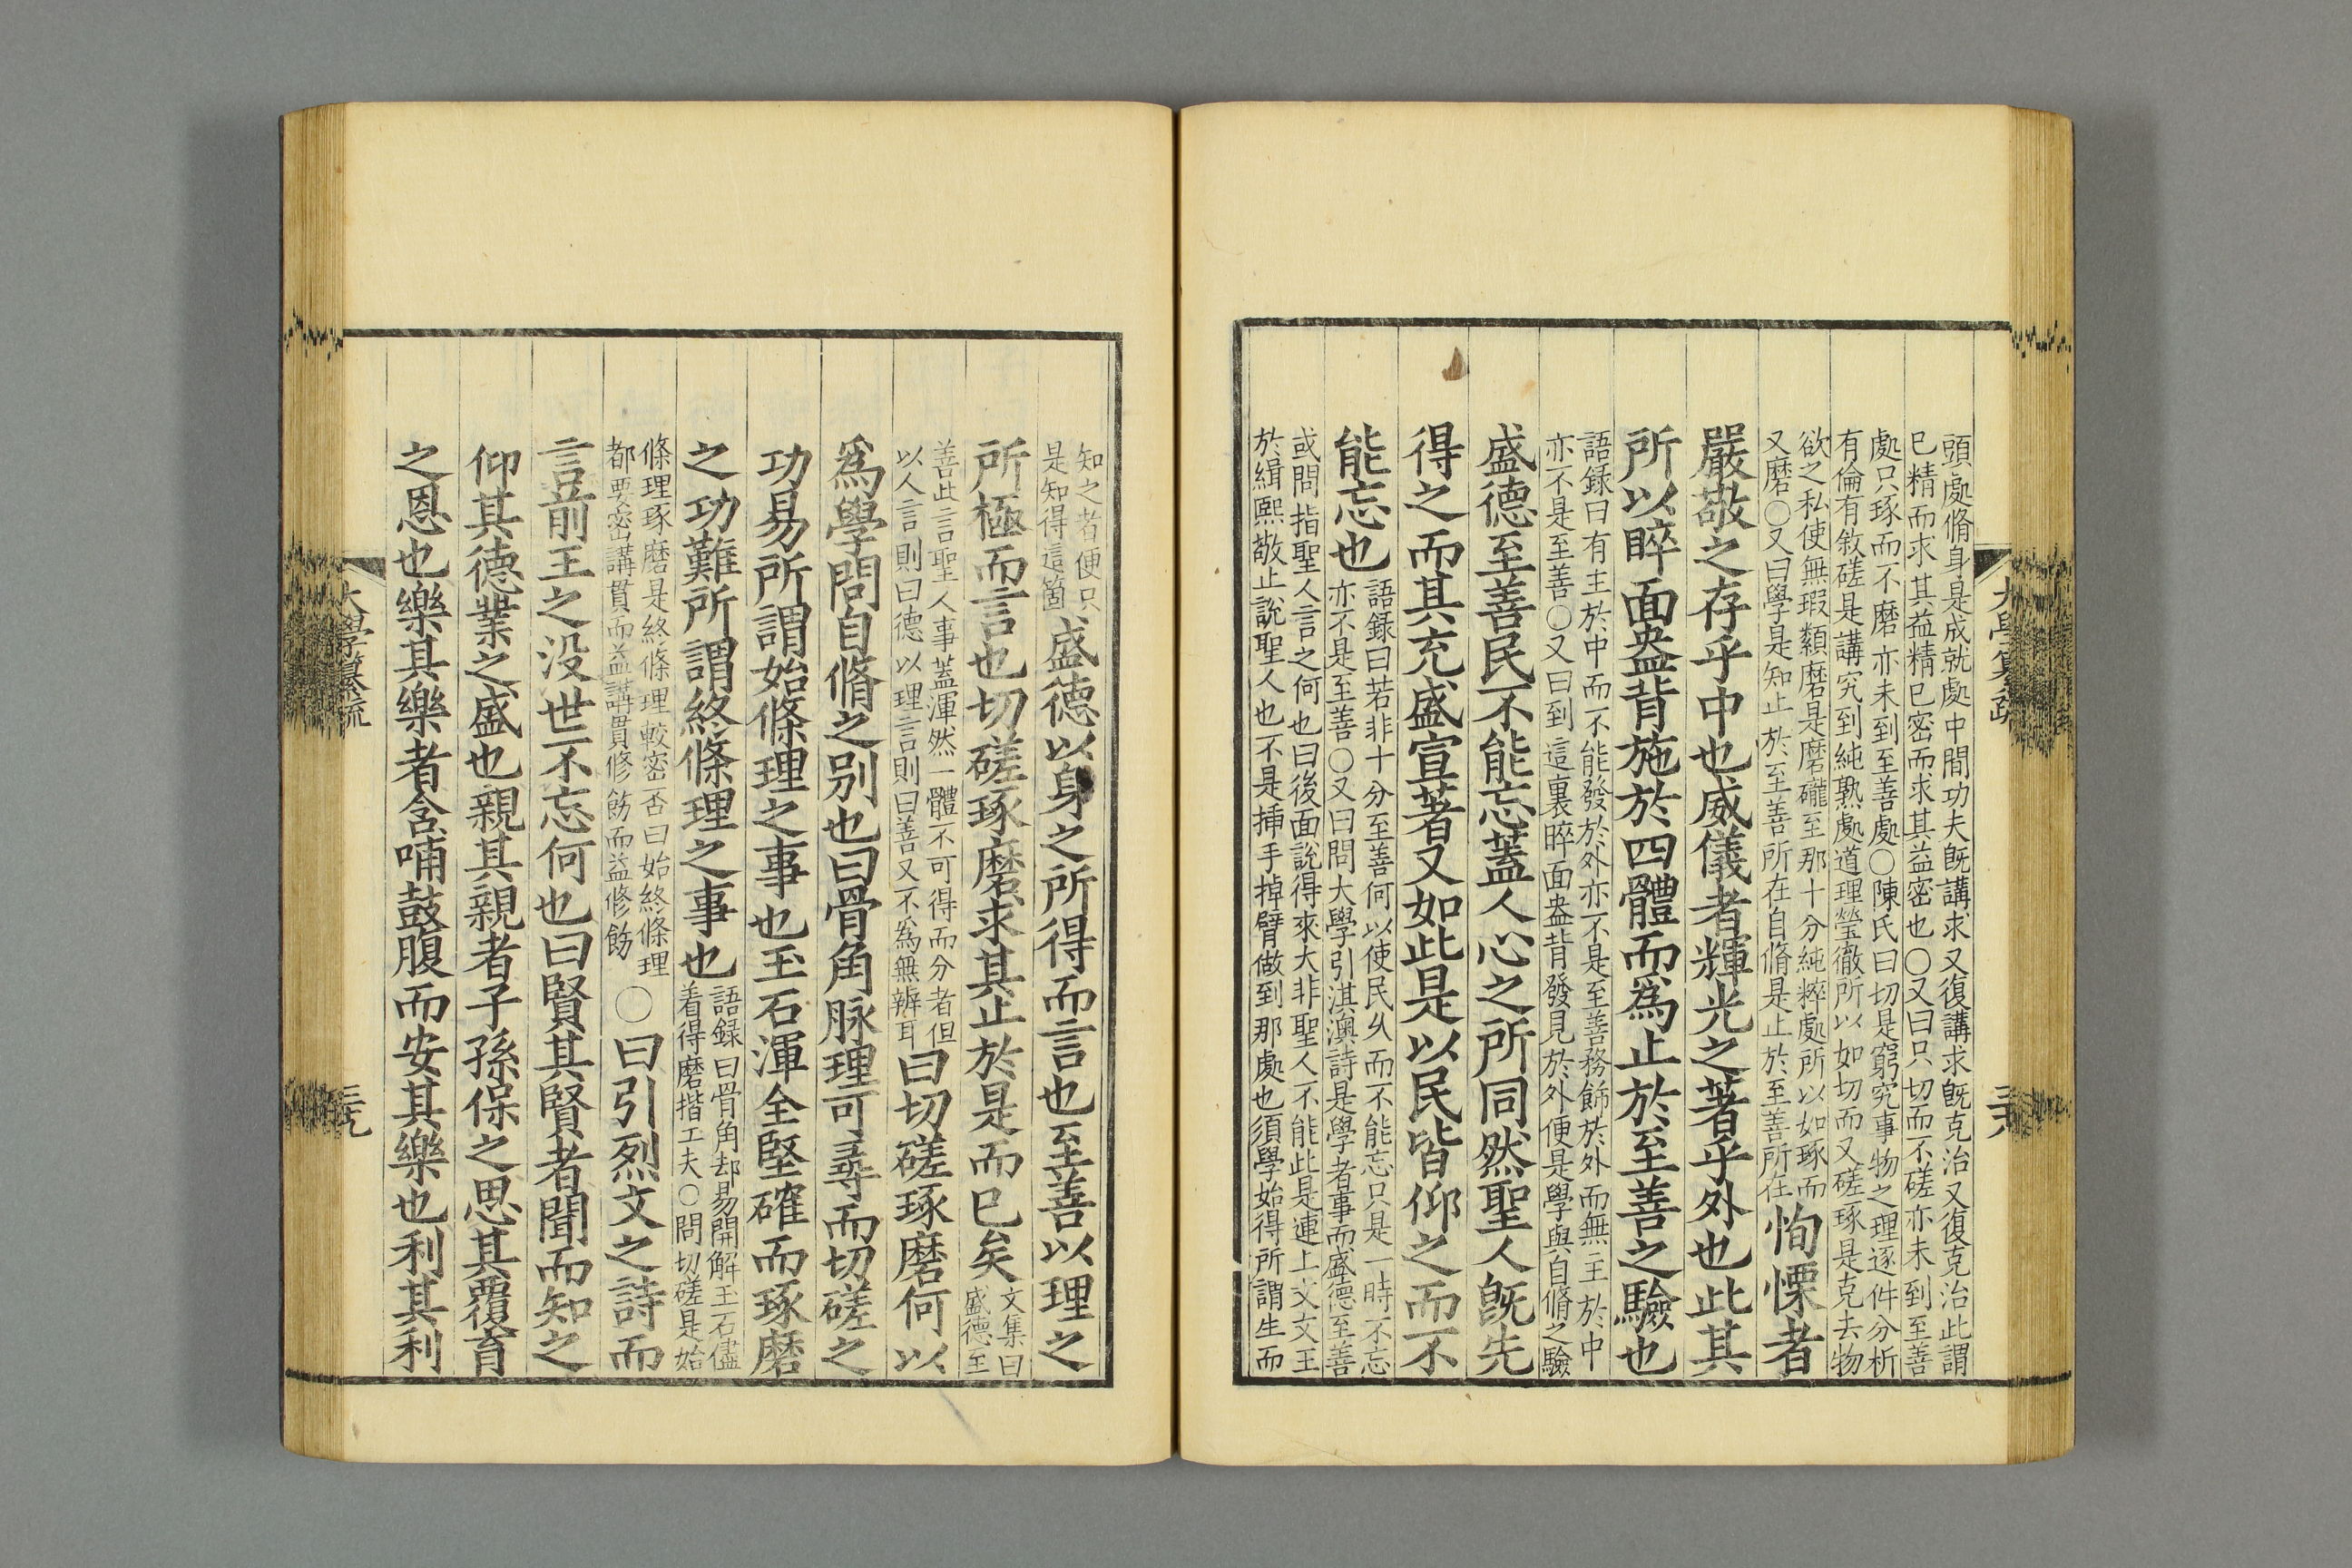 頭處脩身是成就處中間功夫旣講求又復講求旣克治又復克治此謂
已精而求其益精已密而求其益密也○又曰只切而不磋亦未到至善
處只琢而不磨亦未到至善處○陳氏曰切是窮究事物之理逐件分析
有倫有敘磋是講究到純熟處道理瑩徹所以如切而又磋琢是克去物
欲之私使無瑕纇磨是磨礲至那十分純粹處所以如琢而
又磨○又曰學是知止於至善所在自脩是止於至善所在
恂慄者
嚴敬之存乎中也威儀者輝光之著乎外也此其
所以睟面盎背施於四體而爲止於至善之驗也
語録曰有主於中而不能發於外亦不是至善務飾於外而無主於中
亦不是至善○又曰到這裏睟面盎背發見於外便是學與自脩之驗
盛德至善民不能忘蓋人心之所同然聖人旣先
得之而其充盛宣著又如此是以民皆仰之而不
能忘也
語録曰若非十分至善何以使民久而不能忘只是一時不忘
亦不是至善○又曰問大學引淇澳詩是學者事而盛德至善
或問指聖人言之何也曰後面說得來大非聖人不能此是連上文文王
於緝熙敬止說聖人也不是揷手掉臂做到那處也須學始得所謂生而
大學纂疏
三十八
知之者便只
是知得這箇
盛德以身之所得而言也至善以理之
所極而言也切磋琢磨求其止於是而已矣
文集曰
盛德至
善此言聖人事蓋渾然一體不可得而分者但
以人言則曰德以理言則曰善又不爲無辨耳
曰切磋琢磨何以
爲學問自脩之別也曰骨角脉理可尋而切磋之
功易所謂始條理之事也玉石渾全堅確而琢磨
之功難所謂終條理之事也
語録曰骨角却易開解玉石儘
着得磨揩工夫○問切磋是始
條理琢磨是終條理較密否曰始終條理
都要密講貫而益講貫修飭而益修飭
○曰引烈文之詩而
言前王之没世不忘何也曰賢其賢者聞而知之
仰其德業之盛也親其親者子孫保之思其覆育
之恩也樂其樂者含哺鼓腹而安其樂也利其利
大學纂疏
三十九